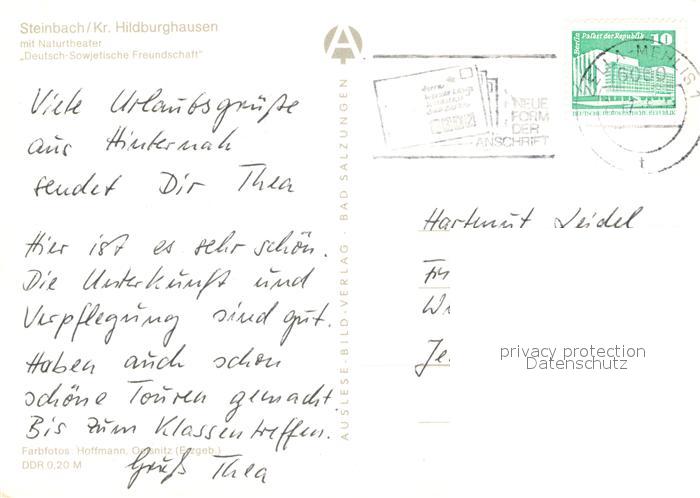 Steinbach/Kr. Hildburghausen
mit Naturtheater
„Deutsch-Sowjetische Freundschaft"
Viele Urlaubsgrüße
aus Hinternah
sendet Dir Thea
Hier ist es sehr schön.
Die Unterkunft und
Verpflegung sind gut.
Haben auch schon
schöne Touren gemacht.
Bis zum Klassentreffen.
Gruß Thea
Farbfotos: Hoffmann, Oelsnitz (Erzgeb.)
DDR 0,20 M
AUSLESE-BILD-VERLAG · BAD SALZUNGEN
NEUE
FORM
DER
ANSCHRIFT
Berlin Palast der Republik 10
DEUTSCHE DEMOKRATISCHE REPUBLIK
ZELLA-MEHLIS 1
6060
t
Hartmut Seidel
Je
privacy protection
Datenschutz